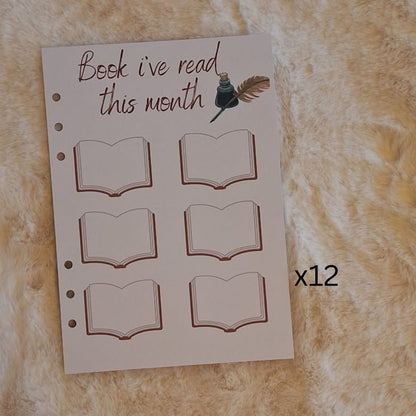 Book i've read
this month
x12